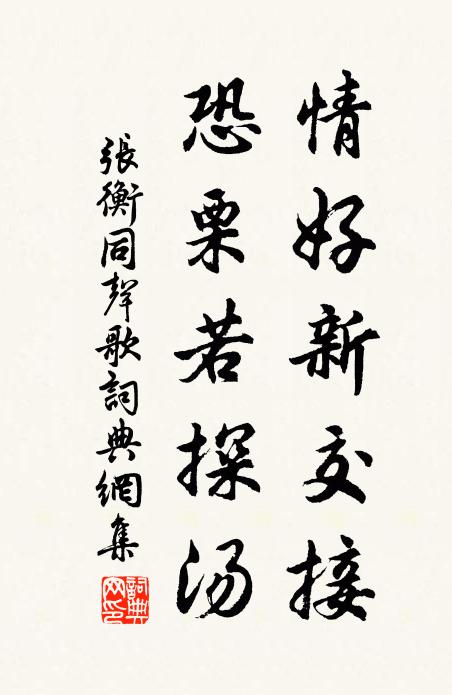 情好新交接
恐栗若探汤
張衡同聲歌詞典網集
詞典网印